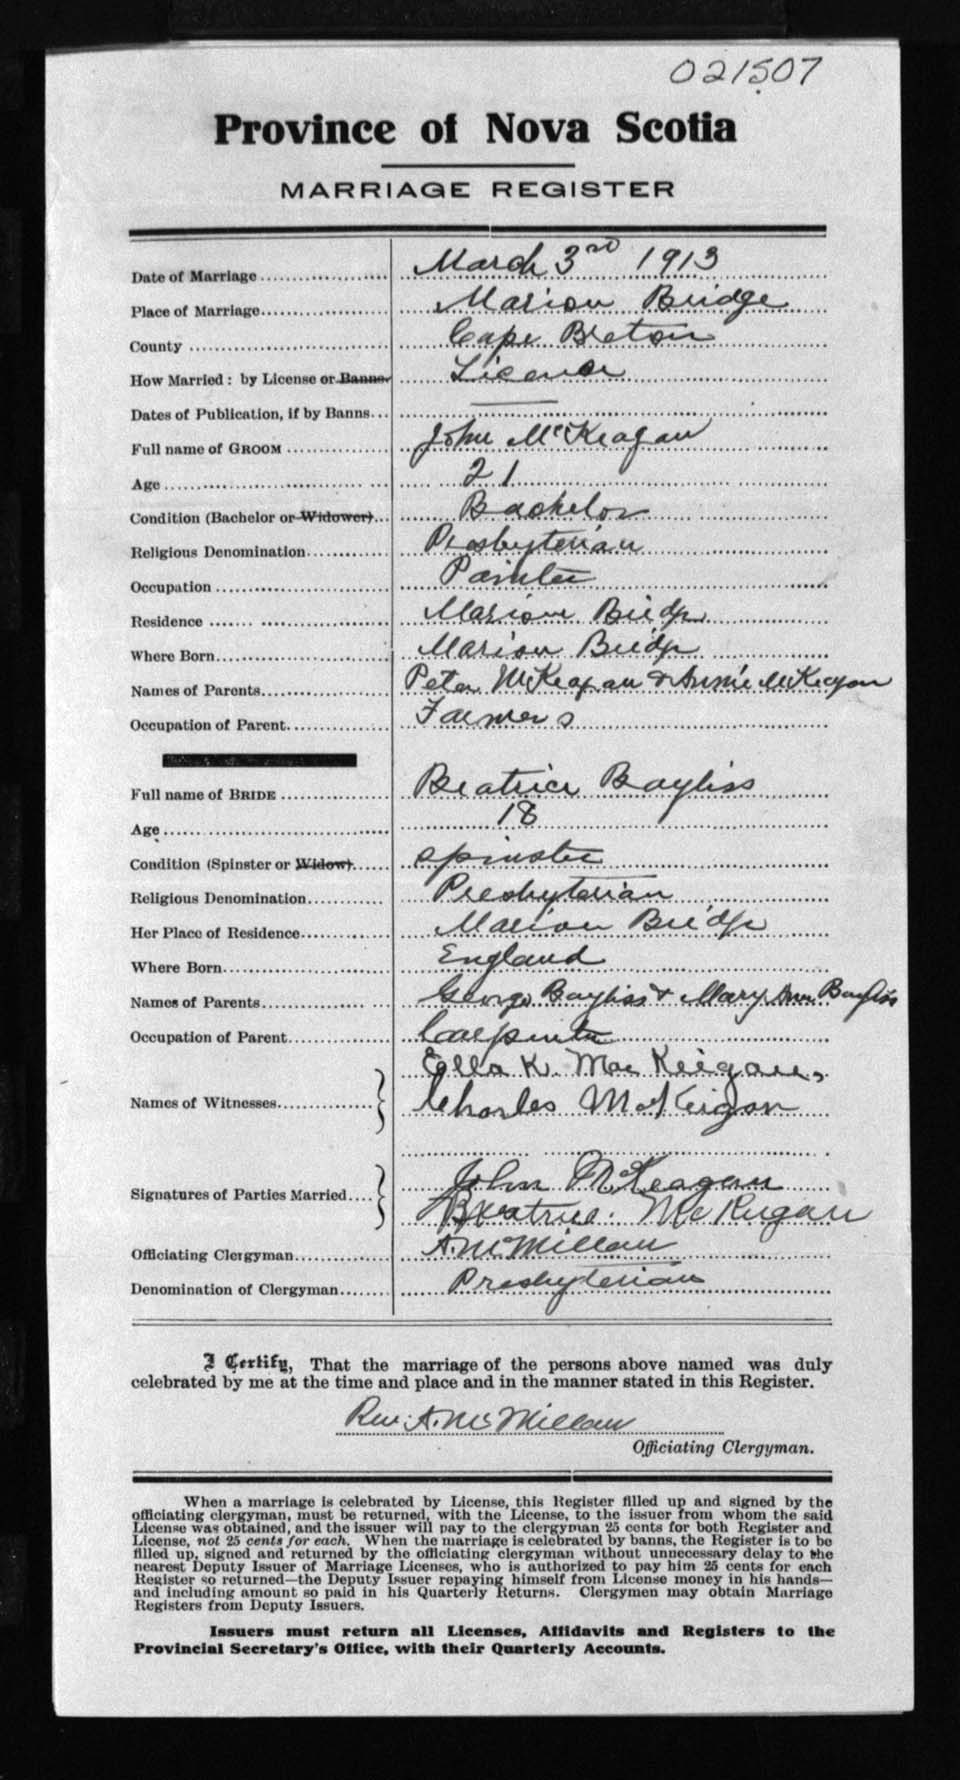 021507
Province of Nova Scotia
MARRIAGE REGISTER
Date of Marriage March 3rd 1913
Place of Marriage Marion Bridge
County Cape Breton
How Married: by License or Banns. License
Dates of Publication, if by Banns... —
Full name of GROOM John McKeagan
Age 21
Condition (Bachelor or Widower) Bachelor
Religious Denomination Presbyterian
Occupation Painter
Residence Marion Bridge
Where Born Marion Bridge
Names of Parents Peter McKeagan & Annie McKeagan
Occupation of Parent Farmers
Full name of BRIDE Beatrice Bayliss
Age 18
Condition (Spinster or Widow) spinster
Religious Denomination Presbyterian
Her Place of Residence Marion Bridge
Where Born England
Names of Parents George Bayliss & Mary Ann Bayliss
Occupation of Parent Carpenter
Ella K. MacKeigan,
Names of Witnesses Charles McKeigan
John McKeagan
Signatures of Parties Married
Beatrice McKeigan
Officiating Clergyman A. McMillan
Denomination of Clergyman Presbyterian
I Certify, That the marriage of the persons above named was duly
celebrated by me at the time and place and in the manner stated in this Register.
Rev. A. McMillan
Officiating Clergyman.
When a marriage is celebrated by License, this Register filled up and signed by the
officiating clergyman, must be returned, with the License, to the issuer from whom the said
License was obtained, and the issuer will pay to the clergyman 25 cents for both Register and
License, not 25 cents for each. When the marriage is celebrated by banns, the Register is to be
filled up, signed and returned by the officiating clergyman without unnecessary delay to the
nearest Deputy Issuer of Marriage Licenses, who is authorized to pay him 25 cents for each
Register so returned—the Deputy Issuer repaying himself from License money in his hands—
and including amount so paid in his Quarterly Returns. Clergymen may obtain Marriage
Registers from Deputy Issuers.
Issuers must return all Licenses, Affidavits and Registers to the
Provincial Secretary's Office, with their Quarterly Accounts.